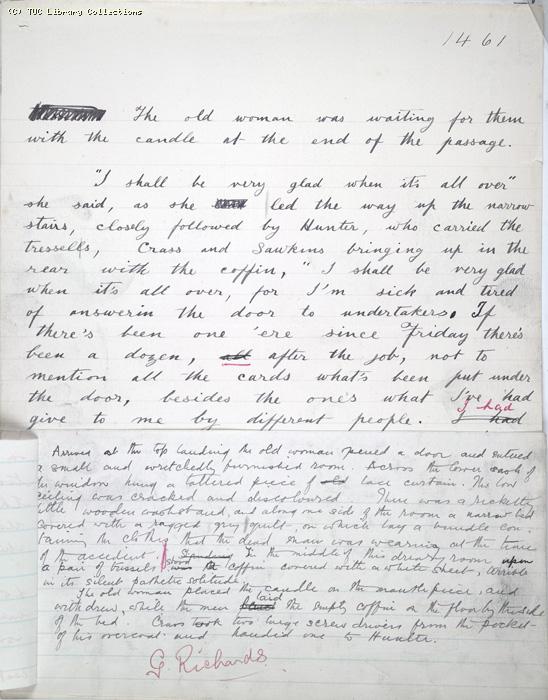 (C) TUC Library Collections
1461
The old woman was waiting for them
with the candle at the end of the passage.
"I shall be very glad when it's all over"
she said, as she led the way up the narrow
stairs, closely followed by Hunter, who carried the
tressells, Crass and Sawkins bringing up in the
rear with the coffin, "I shall be very glad
when it's all over, for I'm sick and tired
of answerin the door to undertakers. If
there's been one 'ere since Friday there's
been a dozen, all after the job, not to
mention all the cards what's been put under
the door, besides the one's what I've had
I had
give to me by different people. I had
Arrived at the top landing the old woman opened a door and entered
a small and wretchedly furnished room. Across the lower sash of
the window hung a tattered piece of old lace curtain. The low
ceiling was cracked and discoloured. There was a ricketty
little wooden washstand, and along one side of the room a narrow bed
covered with a ragged grey quilt, on which lay a bundle con
taining the clothes that the dead man was wearing at the time
of the accident. Standing In the middle of this dreary room upon
a pair of tressels stood the coffin covered with a white sheet, terrible
in its silent pathetic solitude.
The old woman placed the candle on the mantelpiece, and
withdrew, while the men laid the empty coffin on the floor by the side
of the bed. Crass took two large screw drivers from the pocket
of his overcoat and handed one to Hunter.
G. Richards